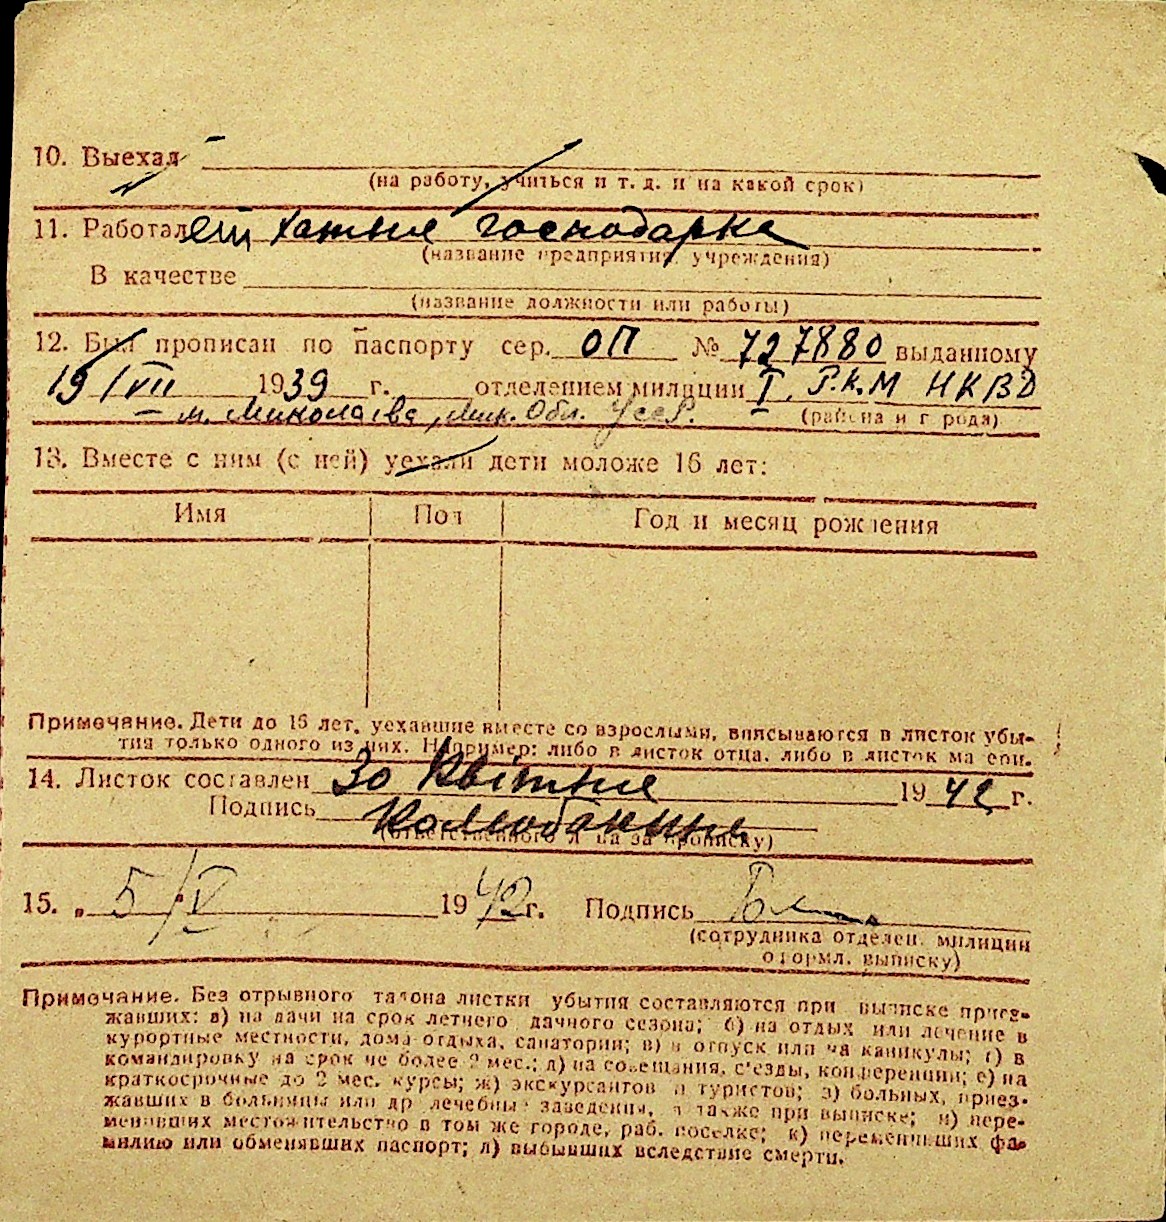 10. Выехал —
(на работу, учиться и т. д. и на какой срок)
11. Работал хатнье господарка
(название предприятия, учреждения)
В качестве
(название должности или работы)
12. Был прописан по паспорту сер. ОП № 727880 выданному
19/VII 1939 г. отделением милиции I. Р.К.М НКВД
м. Миколаєва, Мик. Обл. УССР.
(района и города)
13. Вместе с ним (с ней) уехали дети моложе 16 лет:
Имя Пол Год и месяц рождения
Примечание. Дети до 16 лет, уехавшие вместе со взрослыми, вписываются в листок убы-
тия только одного из них. Например: либо в листок отца, либо в листок матери.
14. Листок составлен 30 Квітня 1942 г.
Подпись
(ответственного лица за прописку)
15. „ 5/V 1942 г. Подпись
(сотрудника отделен. милиции
оформл. выписку)
Примечание. Без отрывного талона листки убытия составляются при выписке приез-
жавших: а) на дачи на срок летнего дачного сезона; б) на отдых или лечение в
курортные местности, дома отдыха, санатории; в) в отпуск или на каникулы; г) в
командировку на срок не более 2 мес.; д) на совещания, с'езды, конференции; е) на
краткосрочные до 2 мес. курсы; ж) экскурсантов и туристов; з) больных, приез-
жавших в больницы или др лечебны заведения, а также при выписке; и) пере-
менивших местожительство в том же городе, раб. поселке; к) переменивших фа-
милию или обменявших паспорт; л) выбывших вследствие смерти.